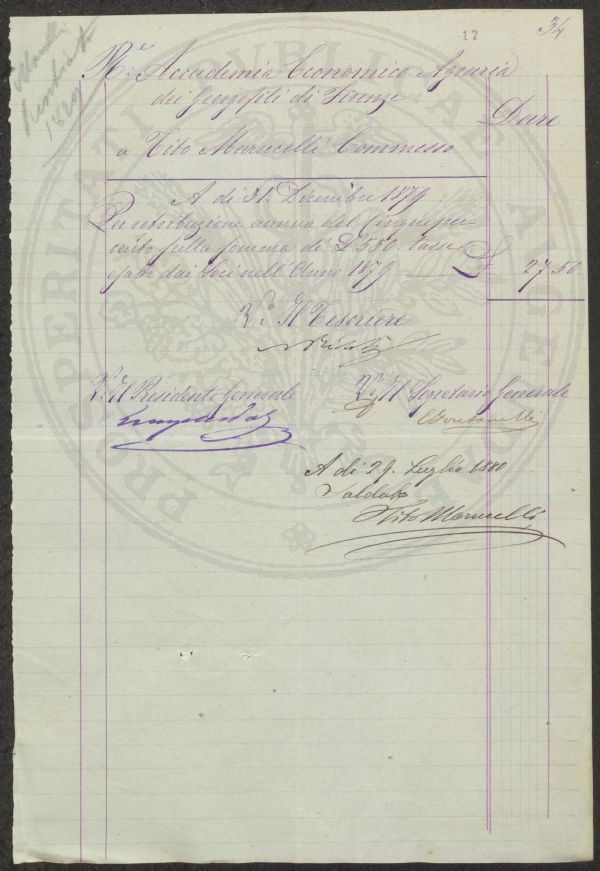 17
34
R.e Accademia Economico Agraria
dei Georgofili di Firenze
Dare
a Tito Marucelli Commesso
A di 31. Dicembre 1879
Per retribuzione annua del Cinque per
cento sulla somma di L 550. tasse
esatte dai Soci nell'Anno 1879 £ 27 50
V.o Il Tesoriere
V.o Il Presidente Generale
V.o Il Segretario Generale
A di 29. Luglio 1880
Saldato
Tito Marucelli
PROSPERITATI PUBLICAE AUGENDAE